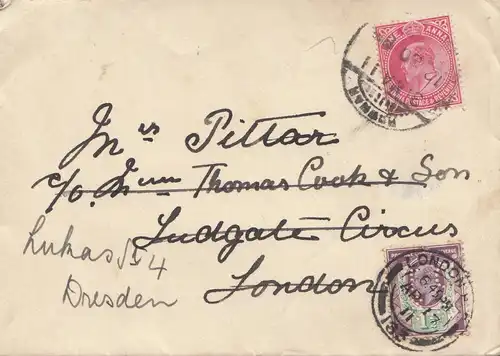 ONE ANNA
Mrs Pittar
c/o. Thomas Cook & Son
Ludgate Circus
London
Lukas St 4
Dresden
LONDON
AP 17
11